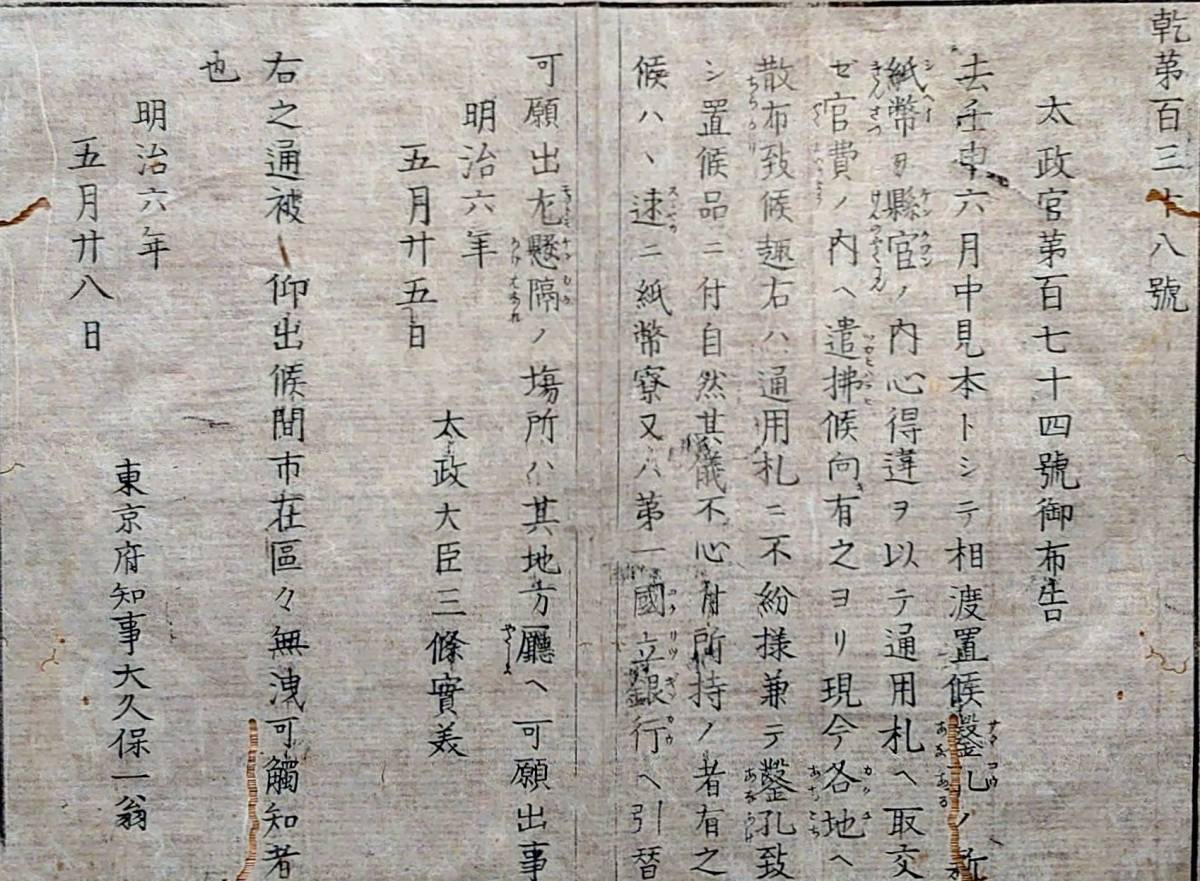 乾第百三十八號
太政官第百七十四號御布告
去壬申六月中見本トシテ相渡置候鑿孔ノ新
紙幣ヲ縣官ノ內心得違ヲ以テ通用札ヘ取交
ゼ官費ノ內ヘ遣拂候向有之ヨリ現今各地ヘ
散布致候趣右ハ通用札ニ不紛樣兼テ鑿孔致
シ置候品ニ付自然其儀不心付所持ノ者有之
候ハヽ速ニ紙幣寮又ハ第一國立銀行ヘ引替
可願出尤懸隔ノ塲所ハ其地方廳ヘ可願出事
明治六年
五月廿五日
太政大臣三條實美
右之通被 仰出候間市在區々無洩可觸知者
也
明治六年
五月廿八日
東京府知事大久保一翁